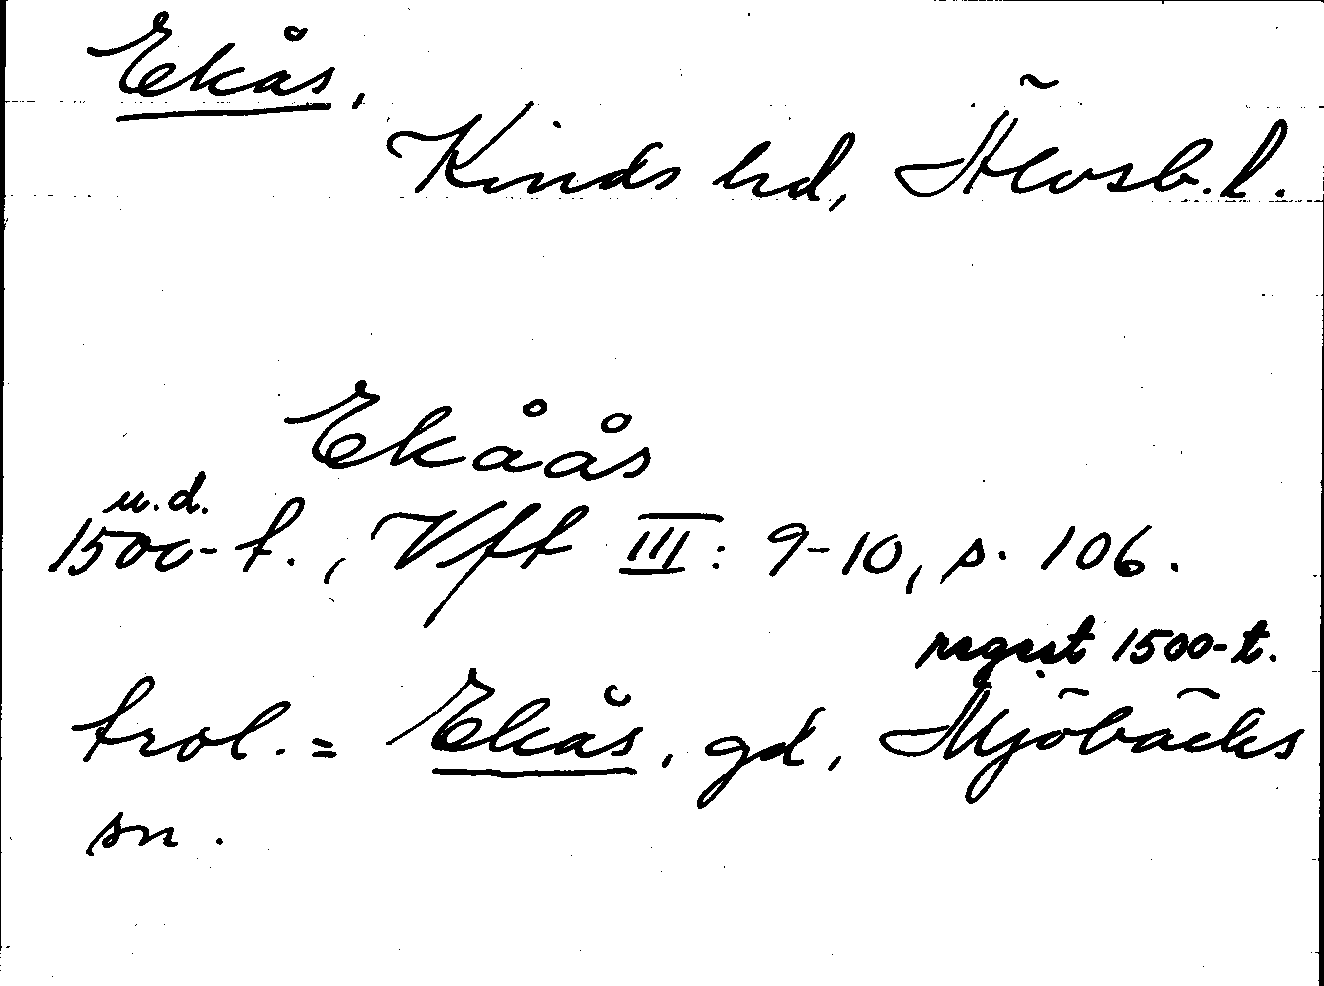 Ekås,
Kinds hd, Älvsb. l.
Ekåås
u.d.
1500-t., Vft III: 9-10, s. 106.
regest 1500-t.
trol. = Ekås, gd, Mjöbäcks
sn.